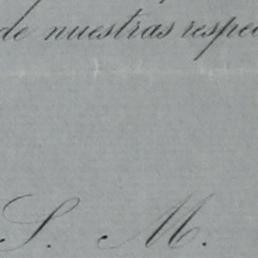 de nuestras respe
S. M.